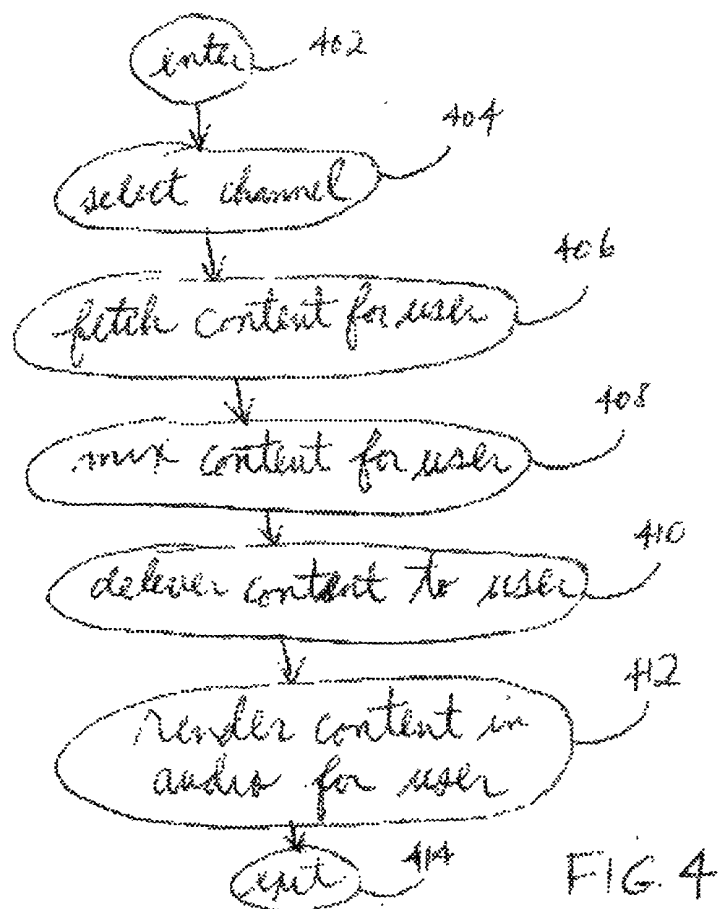 enter
402
select channel
404
fetch content for user
406
mix content for user
408
deliver content to user
410
render content in
audio for user
412
exit
414
FIG. 4